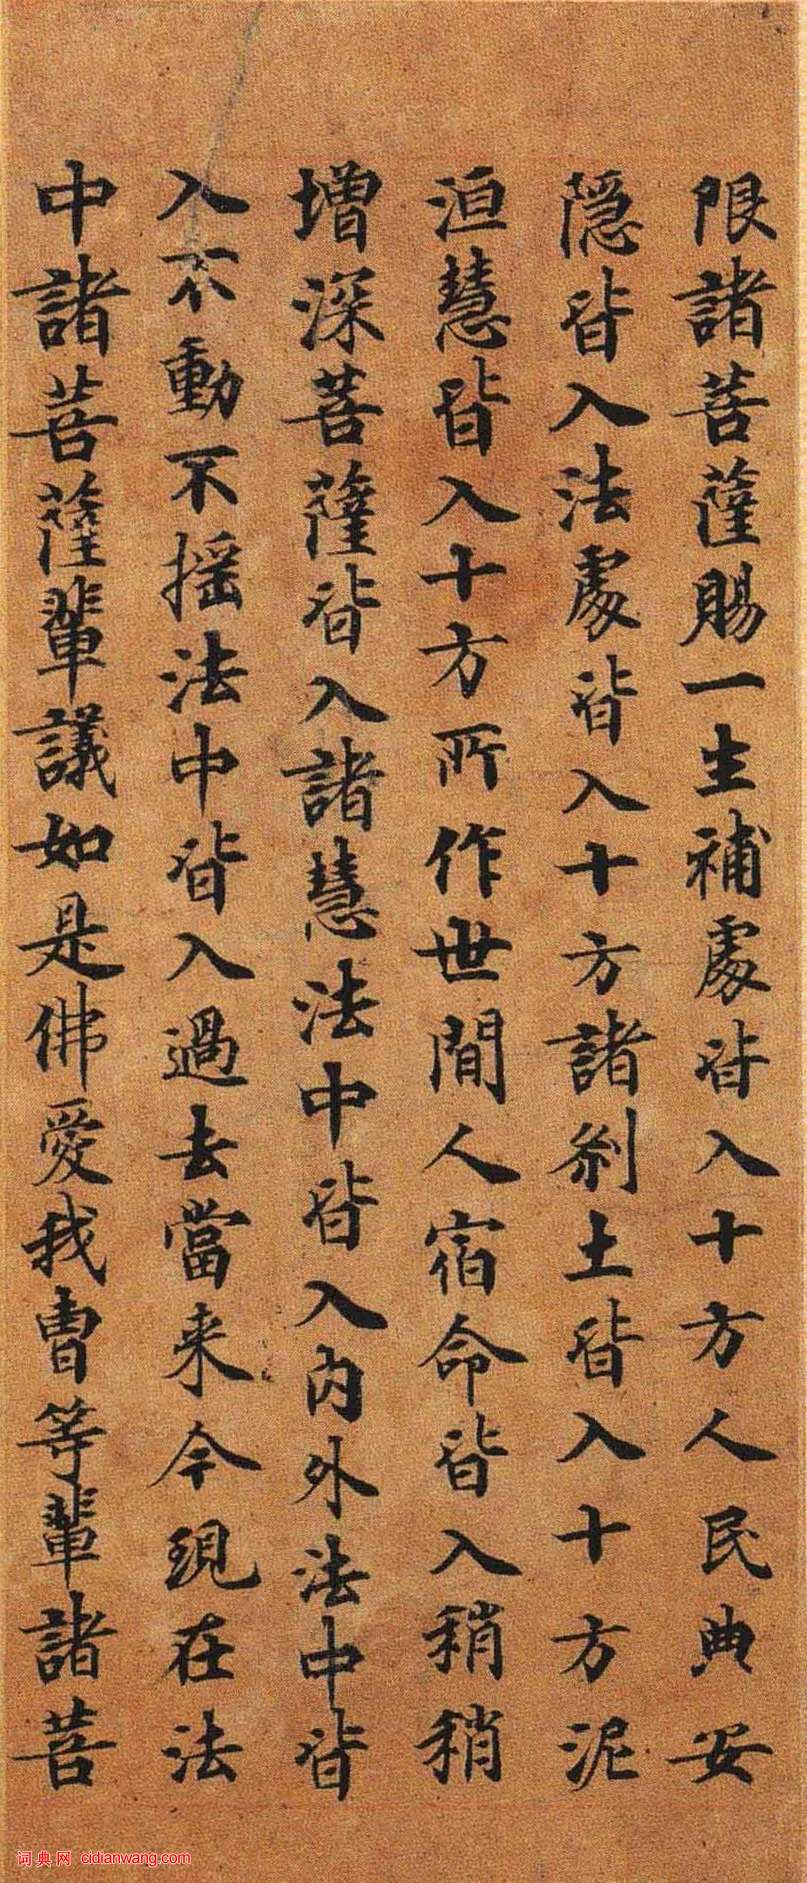 限諸菩薩賜一生補處皆入十方人民典安
隱皆入法處皆入十方諸刹土皆入十方泥
洹慧皆入十方所作世間人宿命皆入稍稍
增深菩薩皆入諸慧法中皆入內外法中皆
入不動不搖法中皆入過去當来今現在法
中諸菩薩輩議如是佛愛我曹等輩諸菩
词典网 cidianwang.com